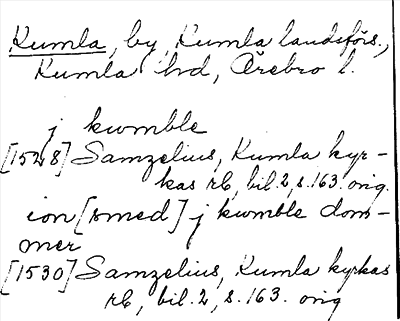 Kumla, by, Kumla landsförs.,
Kumla hd, Örebro l.
j kwmble
[1528] Samzelius, Kumla kyr-
kas rb, bil. 2, s. 163. orig.
ion [smed] j kwmble dom-
mer
[1530] Samzelius, Kumla kyrkas
rb, bil. 2, s. 163. orig